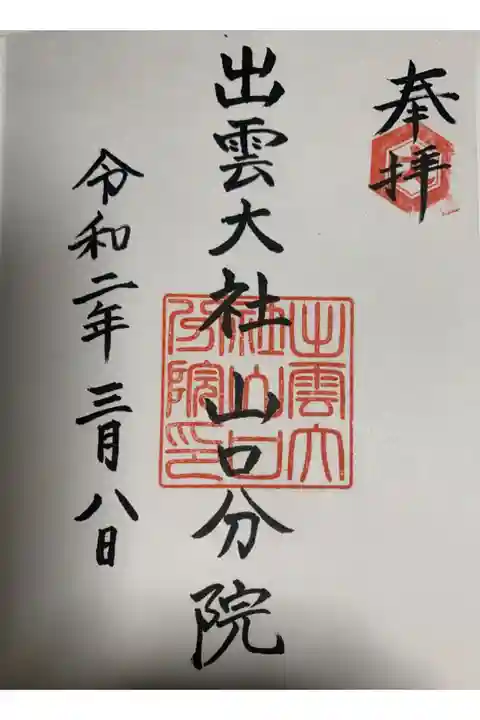 奉拝
出雲大社山口分院
出雲大
社山口
分院之印
令和二年三月八日